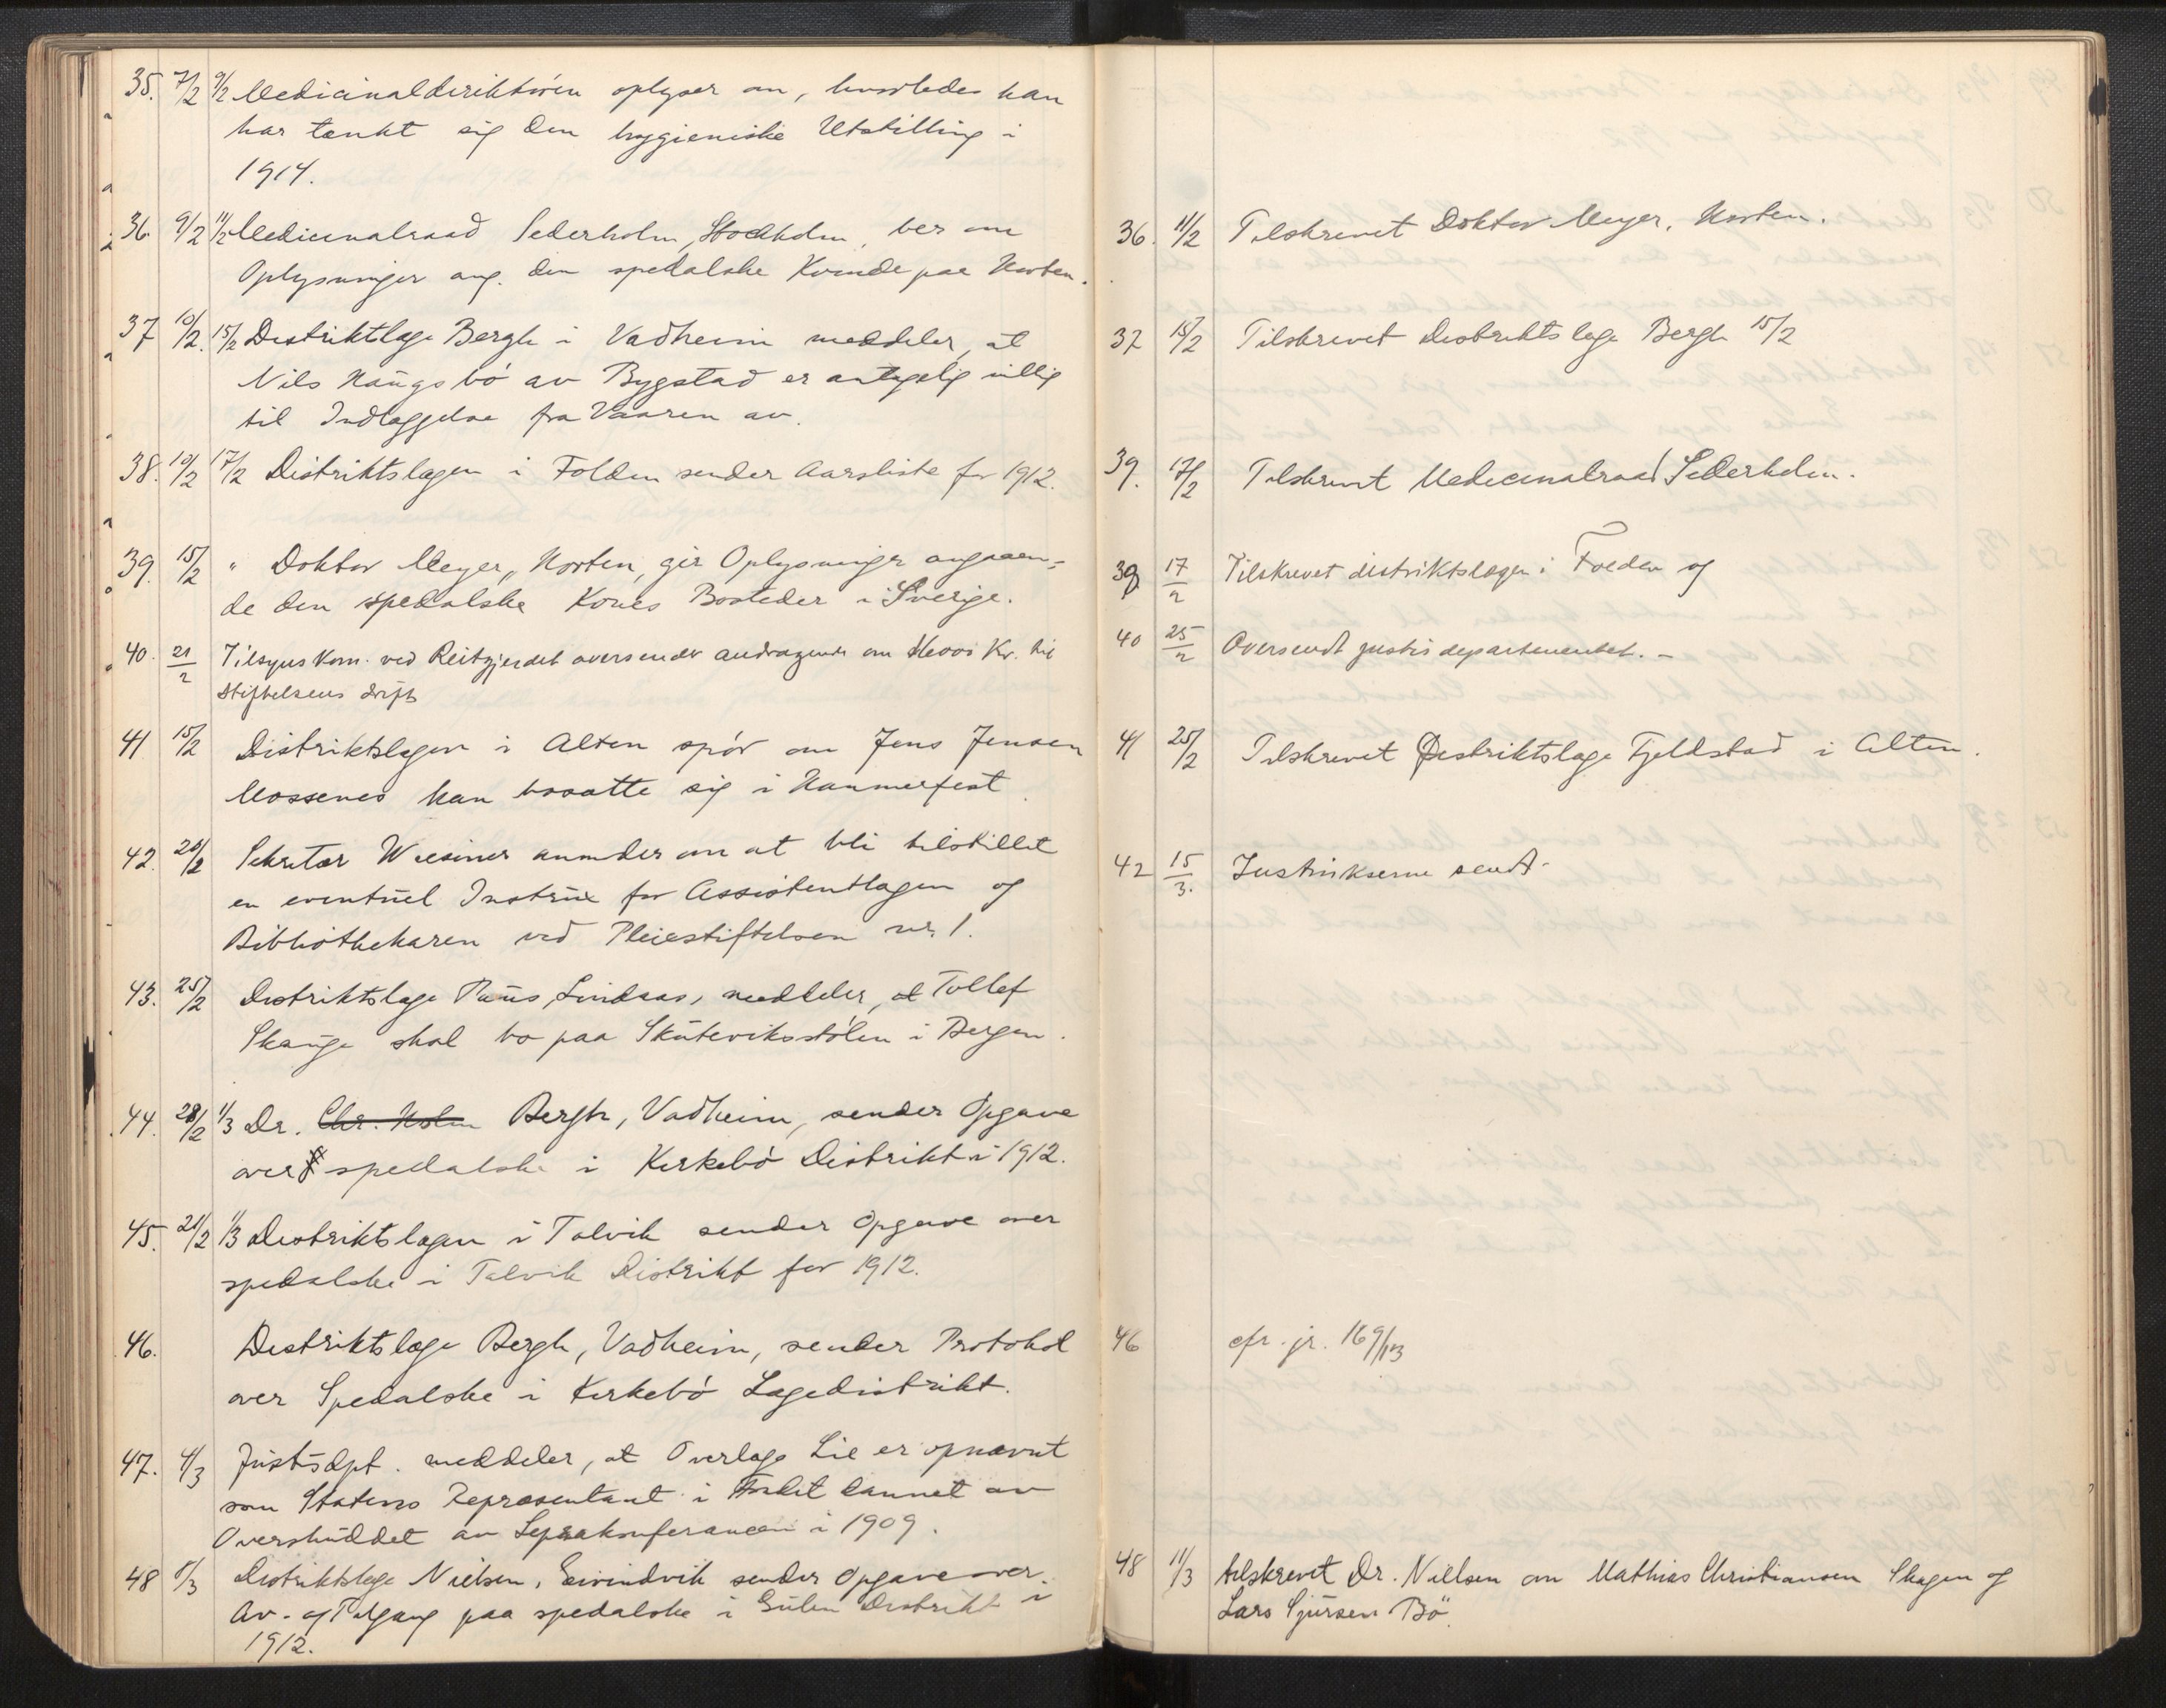 35. 7/2 9/2 Medicinaldirektören oplyser om, hvorledes han
har tænkt sig den hygieniske Utstilling i
1914.
36. 9/2 11/2 Medicinalraad Sederholm, Stockholm, ber om
Oplysninger ang. den spedalske Kvinde paa Horten.
37 10/2. 15/2 Distriktslæge Bergh i Vadheim meddeler, at
Nils Haugsbö av Bygstad er antagelig villig
til Indlæggelse fra Vaaren av.
38. 10/2 17/2 Distriktslægen i Folden sender Aarsliste for 1912.
39. 15/2 " Doktor Meyer, Horten, gir Oplysninger angaaen-
de den spedalske Kones Bosteder i Sverige.
40. 21/2 Tilsyns Kom. ved Reitgjerdet oversender andragende om Kr. til
Stiftelsens drift
41 15/2 Distriktslægen i Alten spör om Jens Jensen
Mossenes kan bosætte sig i Hammerfest.
42. 20/2 Sekretær Wiesener anmoder om at bli tilstillet
en eventuel Instrux for Assistentlægen og
Bibliothekaren ved Pleiestiftelsen nr. 1.
43. 25/2 Distriktslæge Paus, Lindaas, meddeler, at Tollef
Skauge skal bo paa Skuteviksstölen i Bergen.
44. 28/2 1/3 Dr. Chr. Holm Bergh, Vadheim, sender Opgave
over spedalske i Kirkebö Distrikt i 1912.
45. 21/2 1/3 Distriktslægen i Talvik sender Opgave over
spedalske i Talvik Distrikt for 1912.
46. Distriktslæge Bergh, Vadheim, sender Protokol
over Spedalske i Kirkebö Lægedistrikt.
47. 4/3 Justisdpt. meddeler, at Overlæge Lie er opnævnt
som Statens Repræsentant i Fondet dannet av
Overskuddet av Leprakonferancen i 1909.
48 8/3 Distriktslæge Nielsen, Eivindvik sender Opgave over
Av- og Tilgang paa spedalske i Gulen Distrikt i
1912.
36. 11/2 Tilskrevet Doktor Meyer, Horten.
37 15/2 Tilskrevet Distriktslæge Bergh 15/2
39. 17/2 Tilskrevet Medicinalraad Sederholm.
38 17/2 Tilskrevet distriktslægen i Folden og
40 25/2 Oversendt justisdepartementet. -
41 25/2 Tilskrevet Distriktslæge Fjeldstad i Alten.
42 15/3. Instrukserne sendt.
46 cfr. jr. 169/13
48 11/3 tilskrevet Dr. Nielsen om Mathias Christiansen Skagen og
Lars Sjursen Bö.